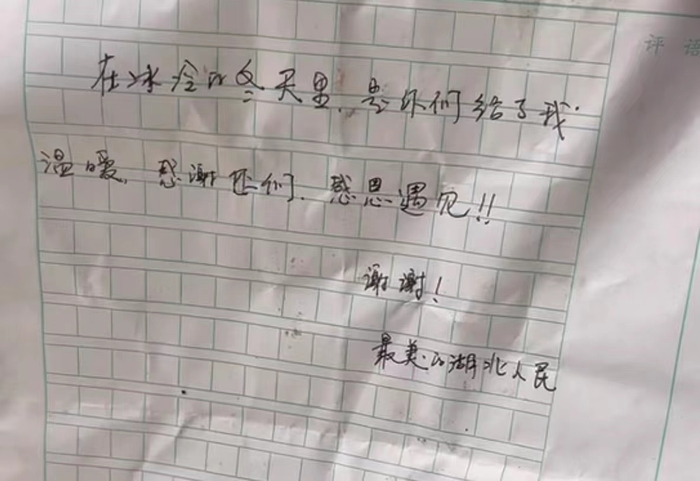 评语
在冰冷的冬天里，是你们给了我
温暖，感谢你们，感恩遇见!!
谢谢!
最美的湖北人民